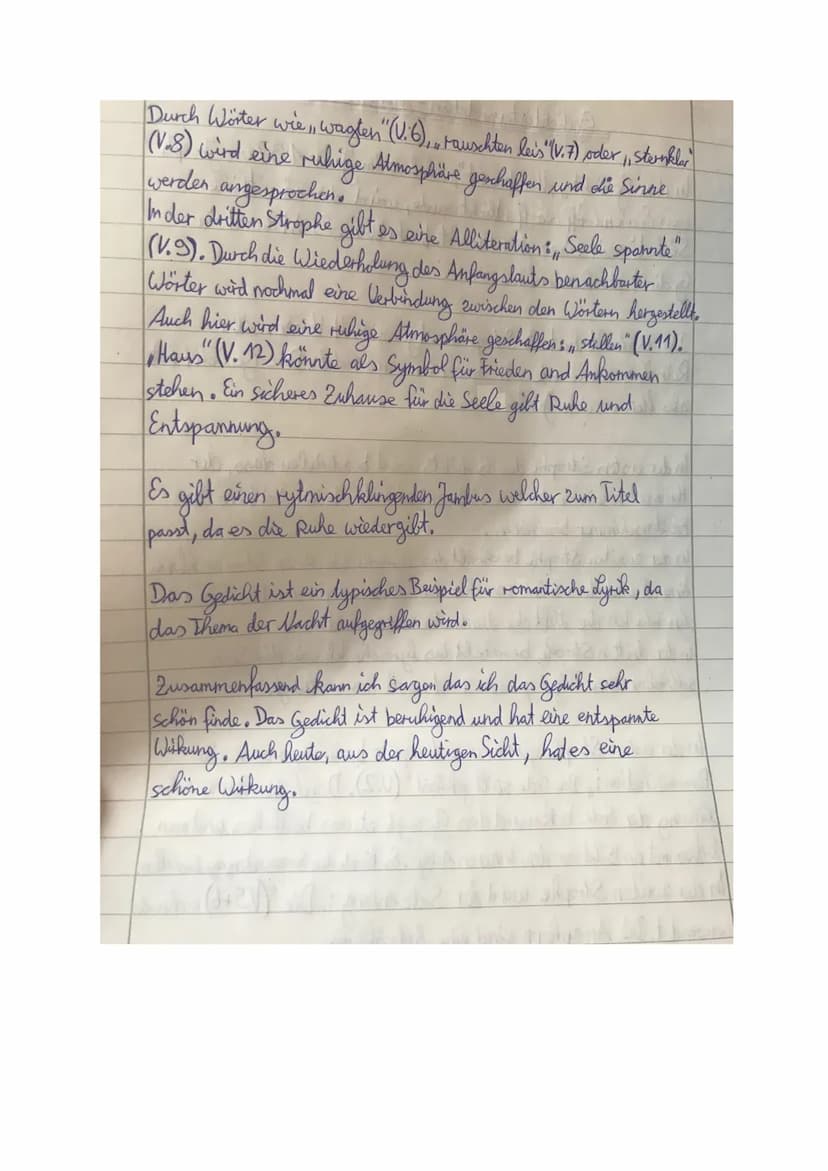 Durch Wörter wie „wagten" (V.6), „rauschten leis" (V.7) oder „sternklar"
(V.8) wird eine ruhige Atmosphäre geschaffen und die Sinne
werden angesprochen.
In der dritten Strophe gibt es eine Alliteration: „Seele spannte"
(V.9). Durch die Wiederholung des Anfangslauts benachbarter
Wörter wird nochmal eine Verbindung zwischen den Wörtern hergestellt.
Auch hier wird eine ruhige Atmosphäre geschaffen: „stillen" (V.11).
„Haus" (V.12) könnte als Symbol für Frieden and Ankommen
stehen. Ein sicheres Zuhause für die Seele gibt Ruhe und
Entspannung.
Es gibt einen rytmischklingenden Jambus welcher zum Titel
passt, da es die Ruhe wiedergibt.
Das Gedicht ist ein typisches Beispiel für romantische Lyrik, da
das Thema der Nacht aufgegriffen wird.
Zusammenfassend kann ich sagen das ich das Gedicht sehr
schön finde. Das Gedicht ist beruhigend und hat eine entspannte
Wirkung. Auch heute, aus der heutigen Sicht, hat es eine
schöne Wirkung.